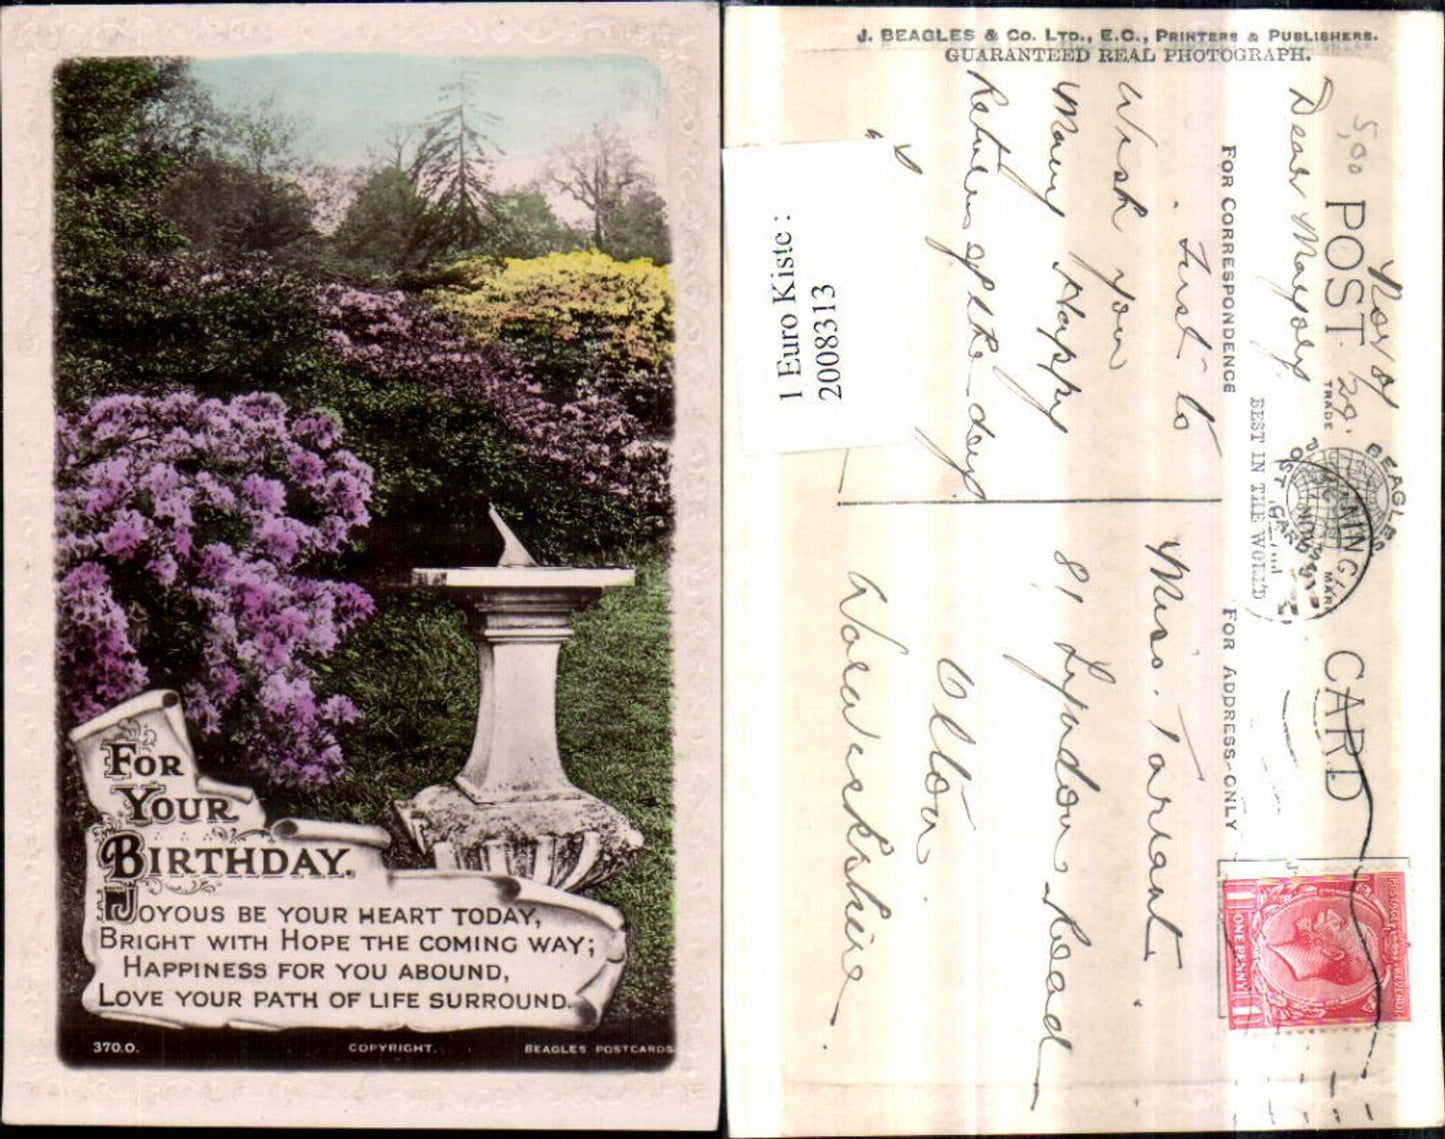 FOR
YOUR
BIRTHDAY.
JOYOUS BE YOUR HEART TODAY,
BRIGHT WITH HOPE THE COMING WAY;
HAPPINESS FOR YOU ABOUND,
LOVE YOUR PATH OF LIFE SURROUND.
370.O.
COPYRIGHT.
BEAGLES POSTCARDS
J. BEAGLES & CO. LTD., E.C., PRINTERS & PUBLISHERS.
GUARANTEED REAL PHOTOGRAPH.
1 Euro Kiste :
2008313
5,00
POST CARD
TRADE MARK
BEAGLES
POST CARDS
BEST IN THE WORLD
FOR CORRESPONDENCE
FOR ADDRESS ONLY
Dear
Just to
Wish you
Many Happy
Returns of the day
Miss. Tarrant.
81 Lyndon Road
Olton.
Warwickshire.
POSTAGE REVENUE
ONE PENNY